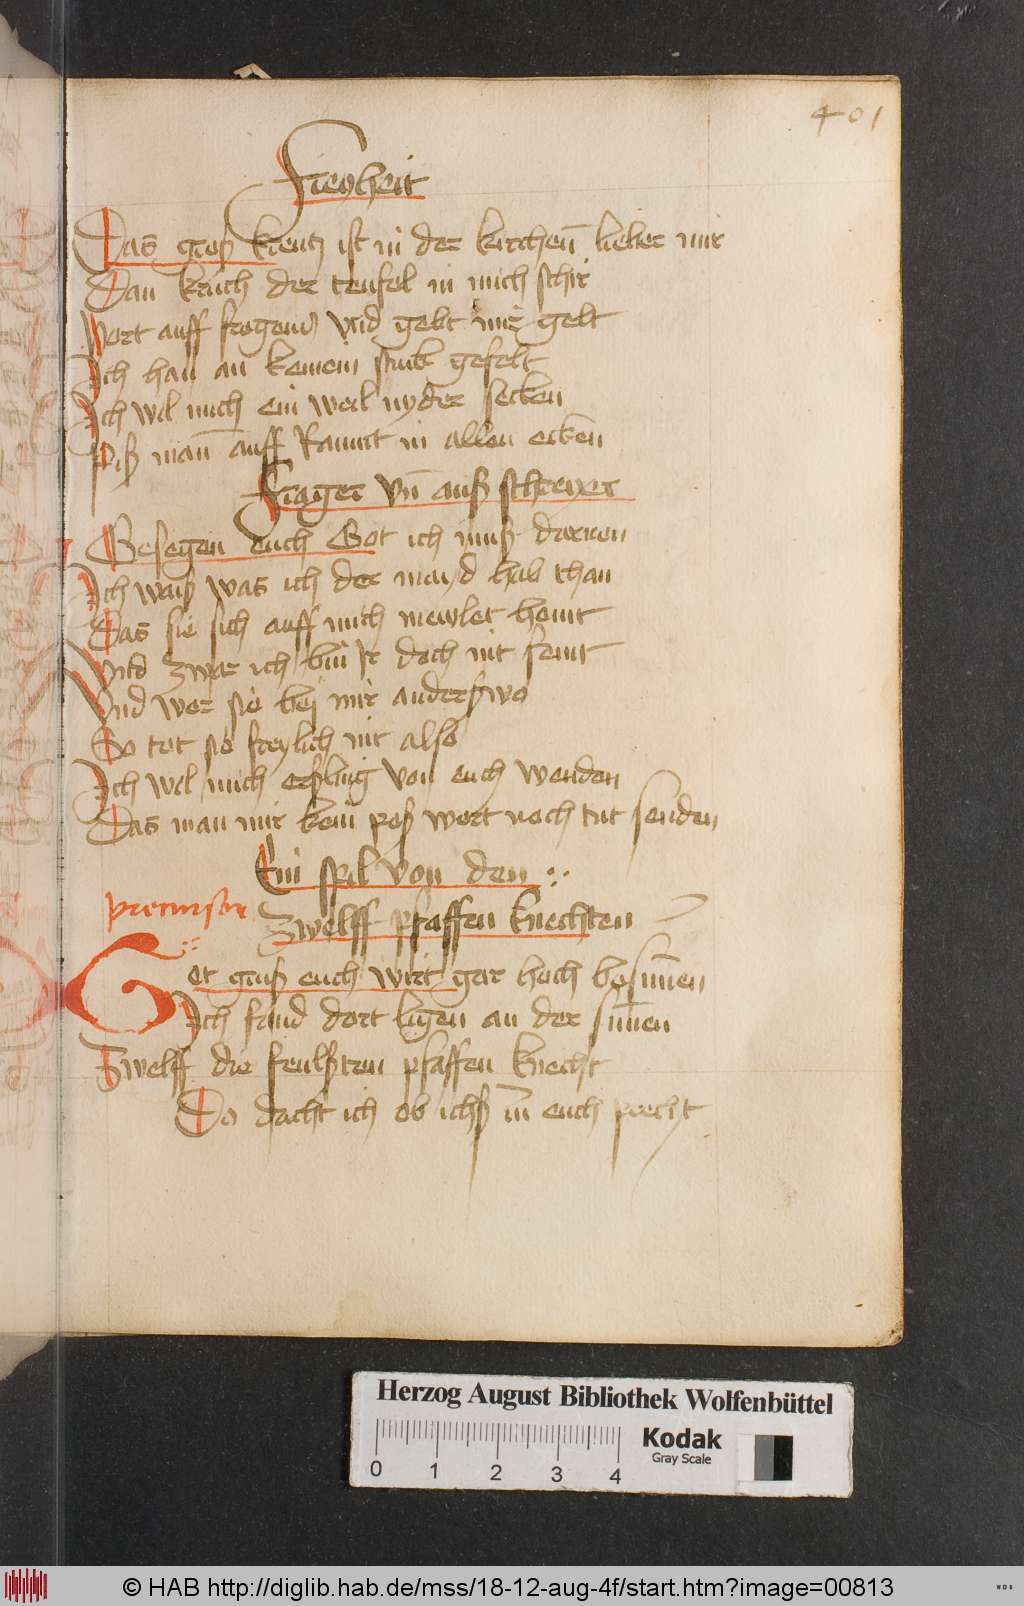 401
Freyheit
Das groß kreutz ist in der kirchen̄ lieber mir
Dan kruch der teufel in mich schir
Hort auff fragens vnd gebt mir gelt
Ich han an keinem stuck gefelt
Ich wil mich ein weil nyder secken
Piß man̄ auff Raumt in allen ecken
Frager vn̄ auß schreyer
Gesegen euch Got ich muß daruon
Ich waiß was ich der mayd hab than
Das sie sich auff mich mewlet hewt
Vnd zwar ich bin Ir doch nit feint
Vnd wer sie bey mir anderßwo
So tet sie freylich nit also
Ich wil mich erßling von euch wenden
Das man mir kein poß wort noch tut senden
Ein spil von den
precursor
Zwelff pfaffen knechten
Got gruß euch wirt gar hoch besun̄en
Ich fand dort ligen an der sun̄en
Zwelff die feulsten pfaffen knecht
Do dacht ich ob ichß in̄ euch precht
Herzog August Bibliothek Wolfenbüttel
0 1 2 3 4
Kodak
Gray Scale
© HAB http://diglib.hab.de/mss/18-12-aug-4f/start.htm?image=00813